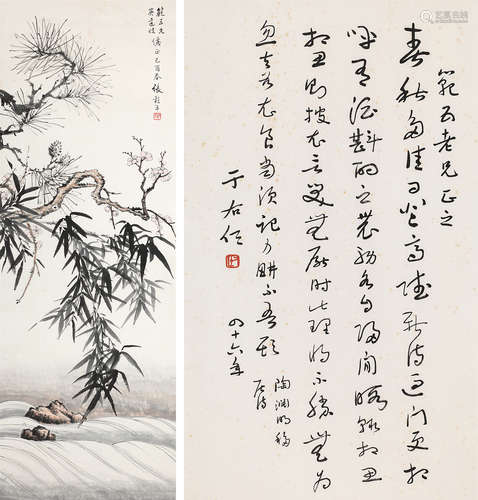 範五老兄正之
春秋多佳日登高賦新詩過門更相
呼有酒斟酌之農務各自歸閒暇輒相思
相思則披衣言笑無厭時此理將不勝無為
忽去茲衣食當須記力耕不吾欺
陶淵明移
居詩
四十六年
于右任